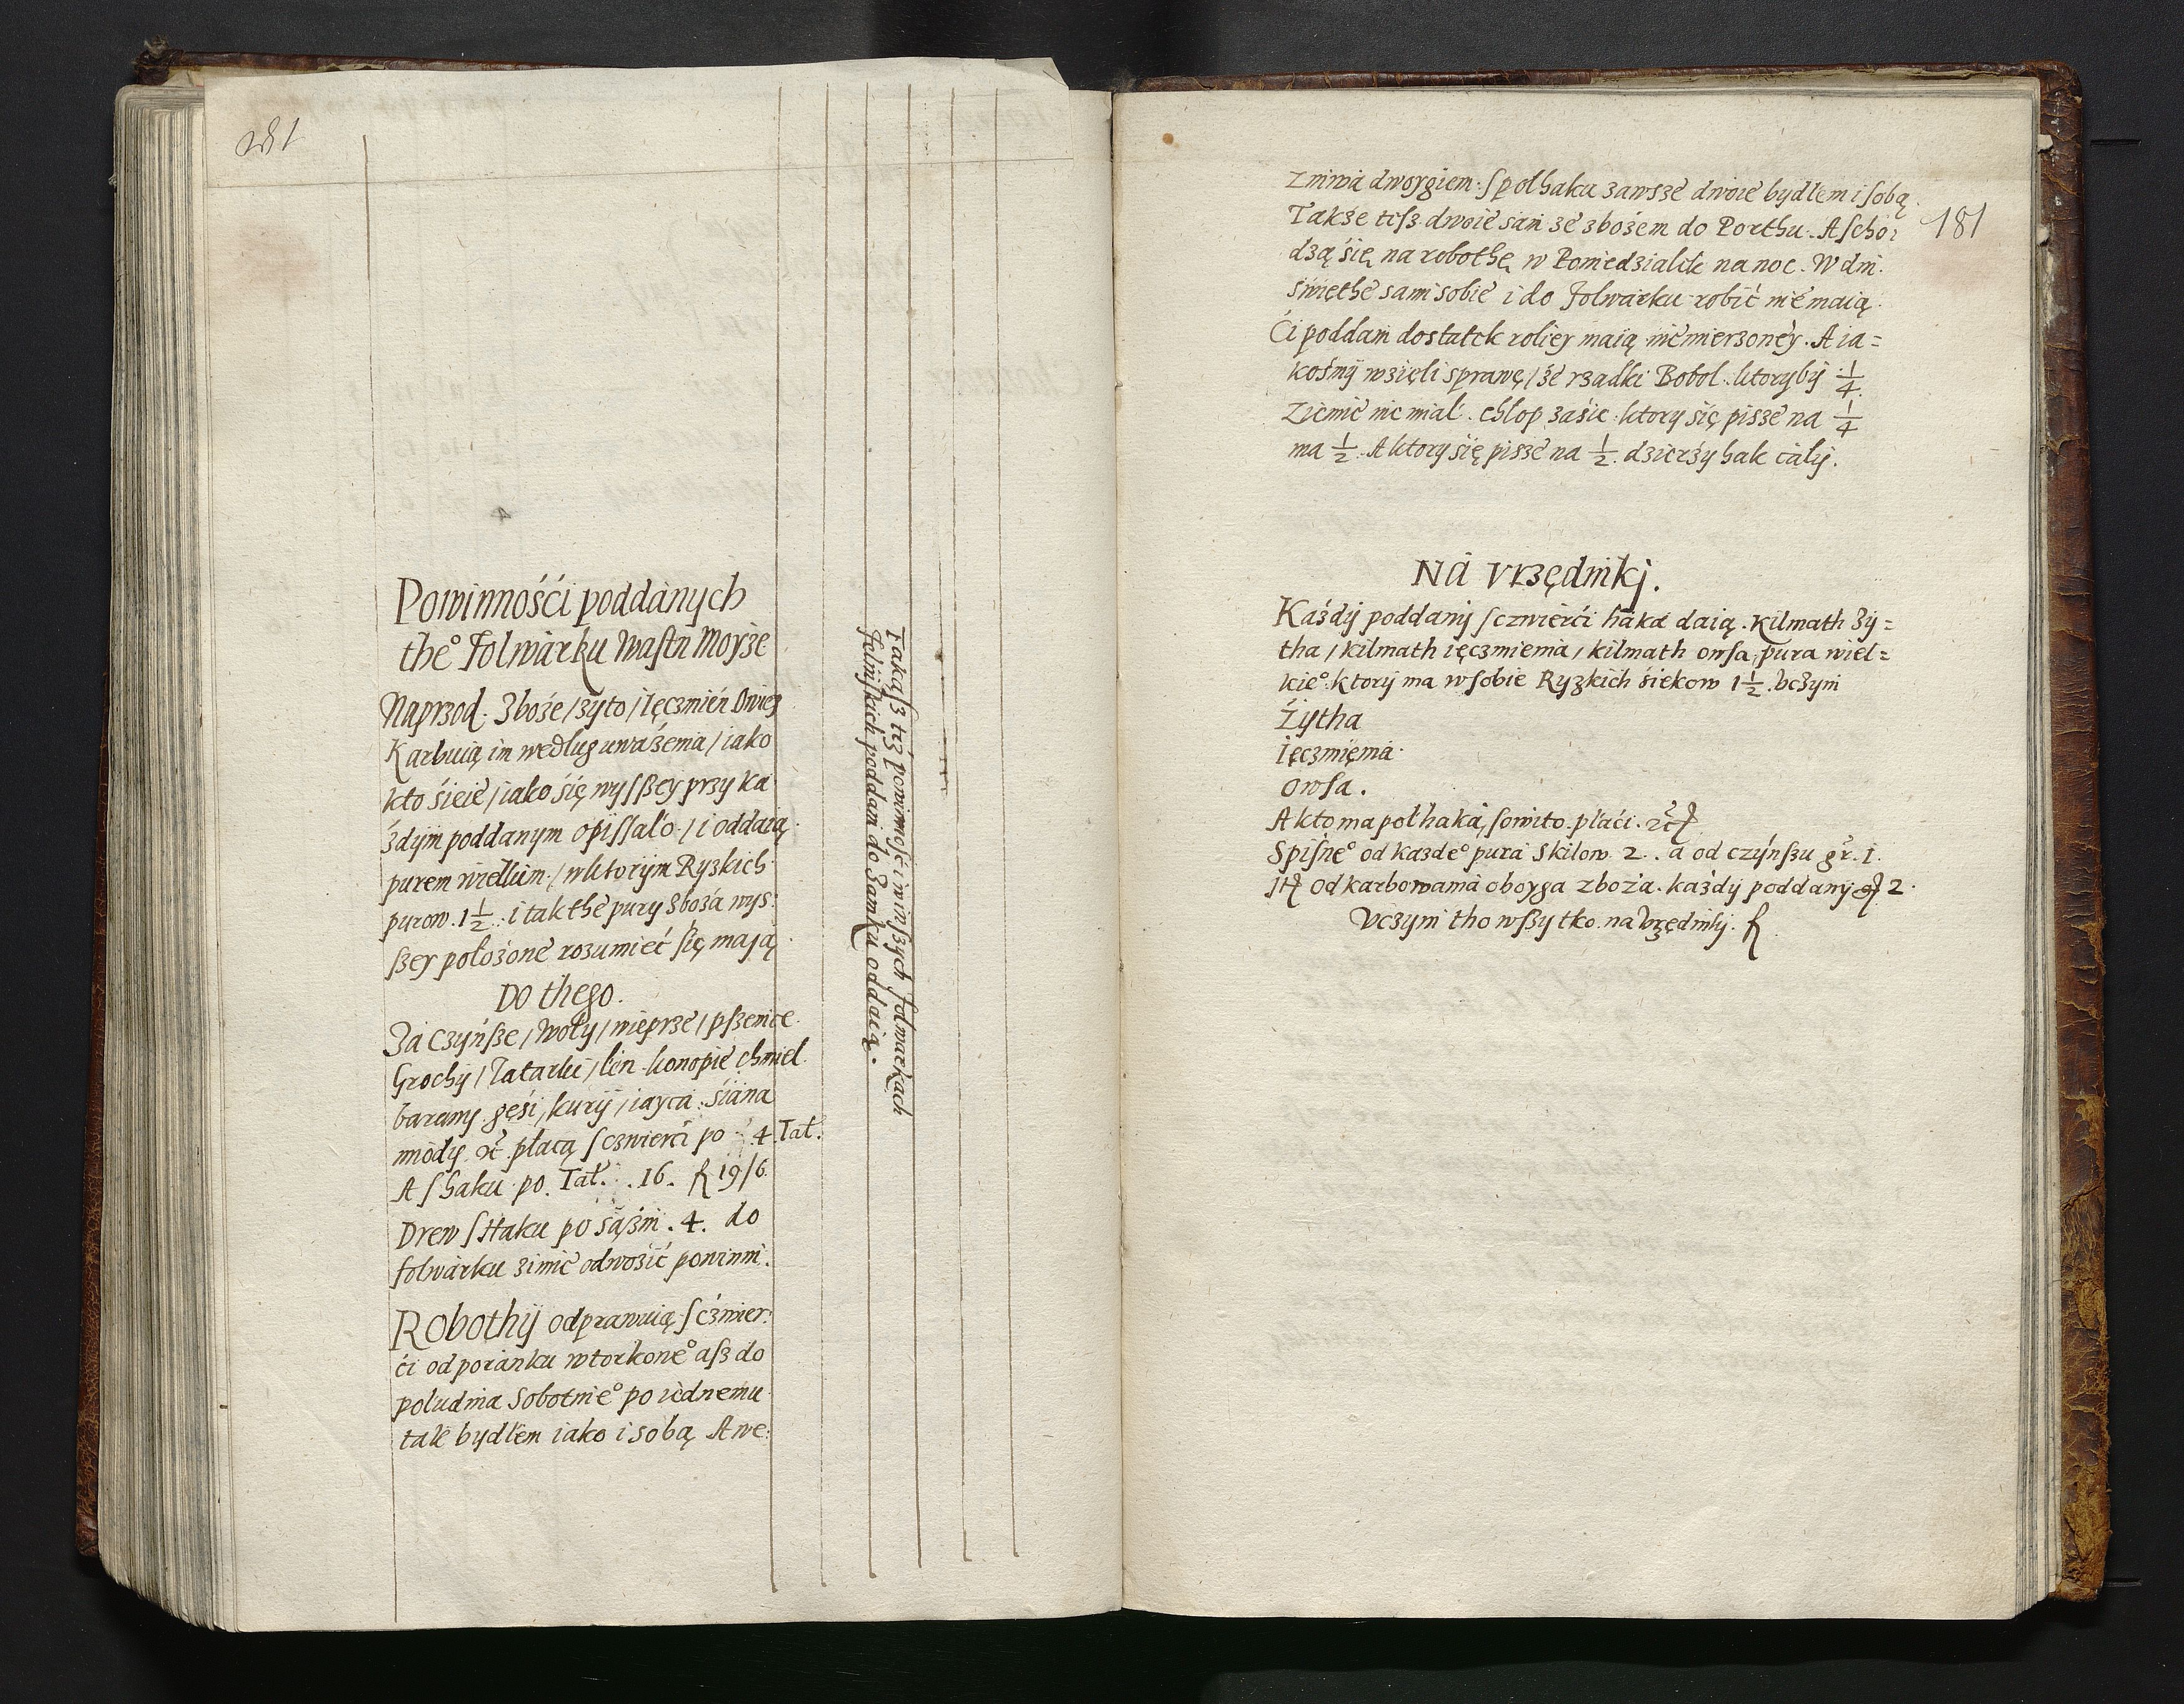 181
Powinnośći poddánych
the° Folwárku Wastn Moyze
Naprzod. Zboże / żyto / Ięczmień Owies
Karbuią im według uważenia / iako
kto śieie / iako się wyſſzey przy ka
żdym poddanym opiſſało / i oddaią
purem wielkim / wktorÿm Ryzkich
purow. 1 1/2. i tak the pury zboża wyſ:
ſzey położone rozumieć się mają
Do thego.
Zá Czynſze / woły / wieprze / pſzenice
Grochy / Tatarki / len konopie chmiel
barany gęśi, kurÿ / iayca: śiána
miody etc płacą ſczwierći po 4. Tal.
A ſhaku po. Tal. . 16. f 19/6
Drew ſHaku po sążni . 4. do
folwárku zimie odwozić powinni.
Robothÿ odprawuią ſczwier:
ći od poránku wtorkone° aſz do
poludnia Sobotnie° po iednemu
tak bydłem iako i sobą A we:
Takąſz też powinność i winſzych folwarkach
Felińſkich poddani do Zamku oddaią.
181
Zniwa dwoygiem: ſpołhaka zawsze dwoie bydłem i ſobą.
Także teſz dwoie sani ze zbożem do Porthu. A ſcho:
dzą śię na robothę w Poniedzialek na noc. W dni.
świethe sami sobie i do Folwárku robić nie maią.
Ći poddani dostatek roliey maią niemierzoney. A ia=
kośmÿ wzięli sprawę / że rzadki Bobol. ktorybÿ 1/4
Ziemie nie mial. chlop zaśie ktory się pisze na 1/4
ma 1/2. A ktory się pisze na 1/2. dzierży hak całÿ.
Ná Vrzędnikj.
Każdÿ poddanÿ ſczwierći háká daią. Kilmath ży=
tha / kilmath ięczmienia / kilmath owſa, pura wiel=
kie° ktorÿ ma wſobie Ryzkich śiekow 1 1/2. vczyni
Żytha
Ięczmięnia.
Owſa.
A kto ma połhaká, ſowito. płaći. etc
Spiſne° od każde° purá Skilow 2.. a od czÿnſzu gr. 1.
Jt od karbowania oboyga zboża. każdÿ poddanÿ 2.
Vczyni tho wſzytko. na Vrzędnikÿ. f